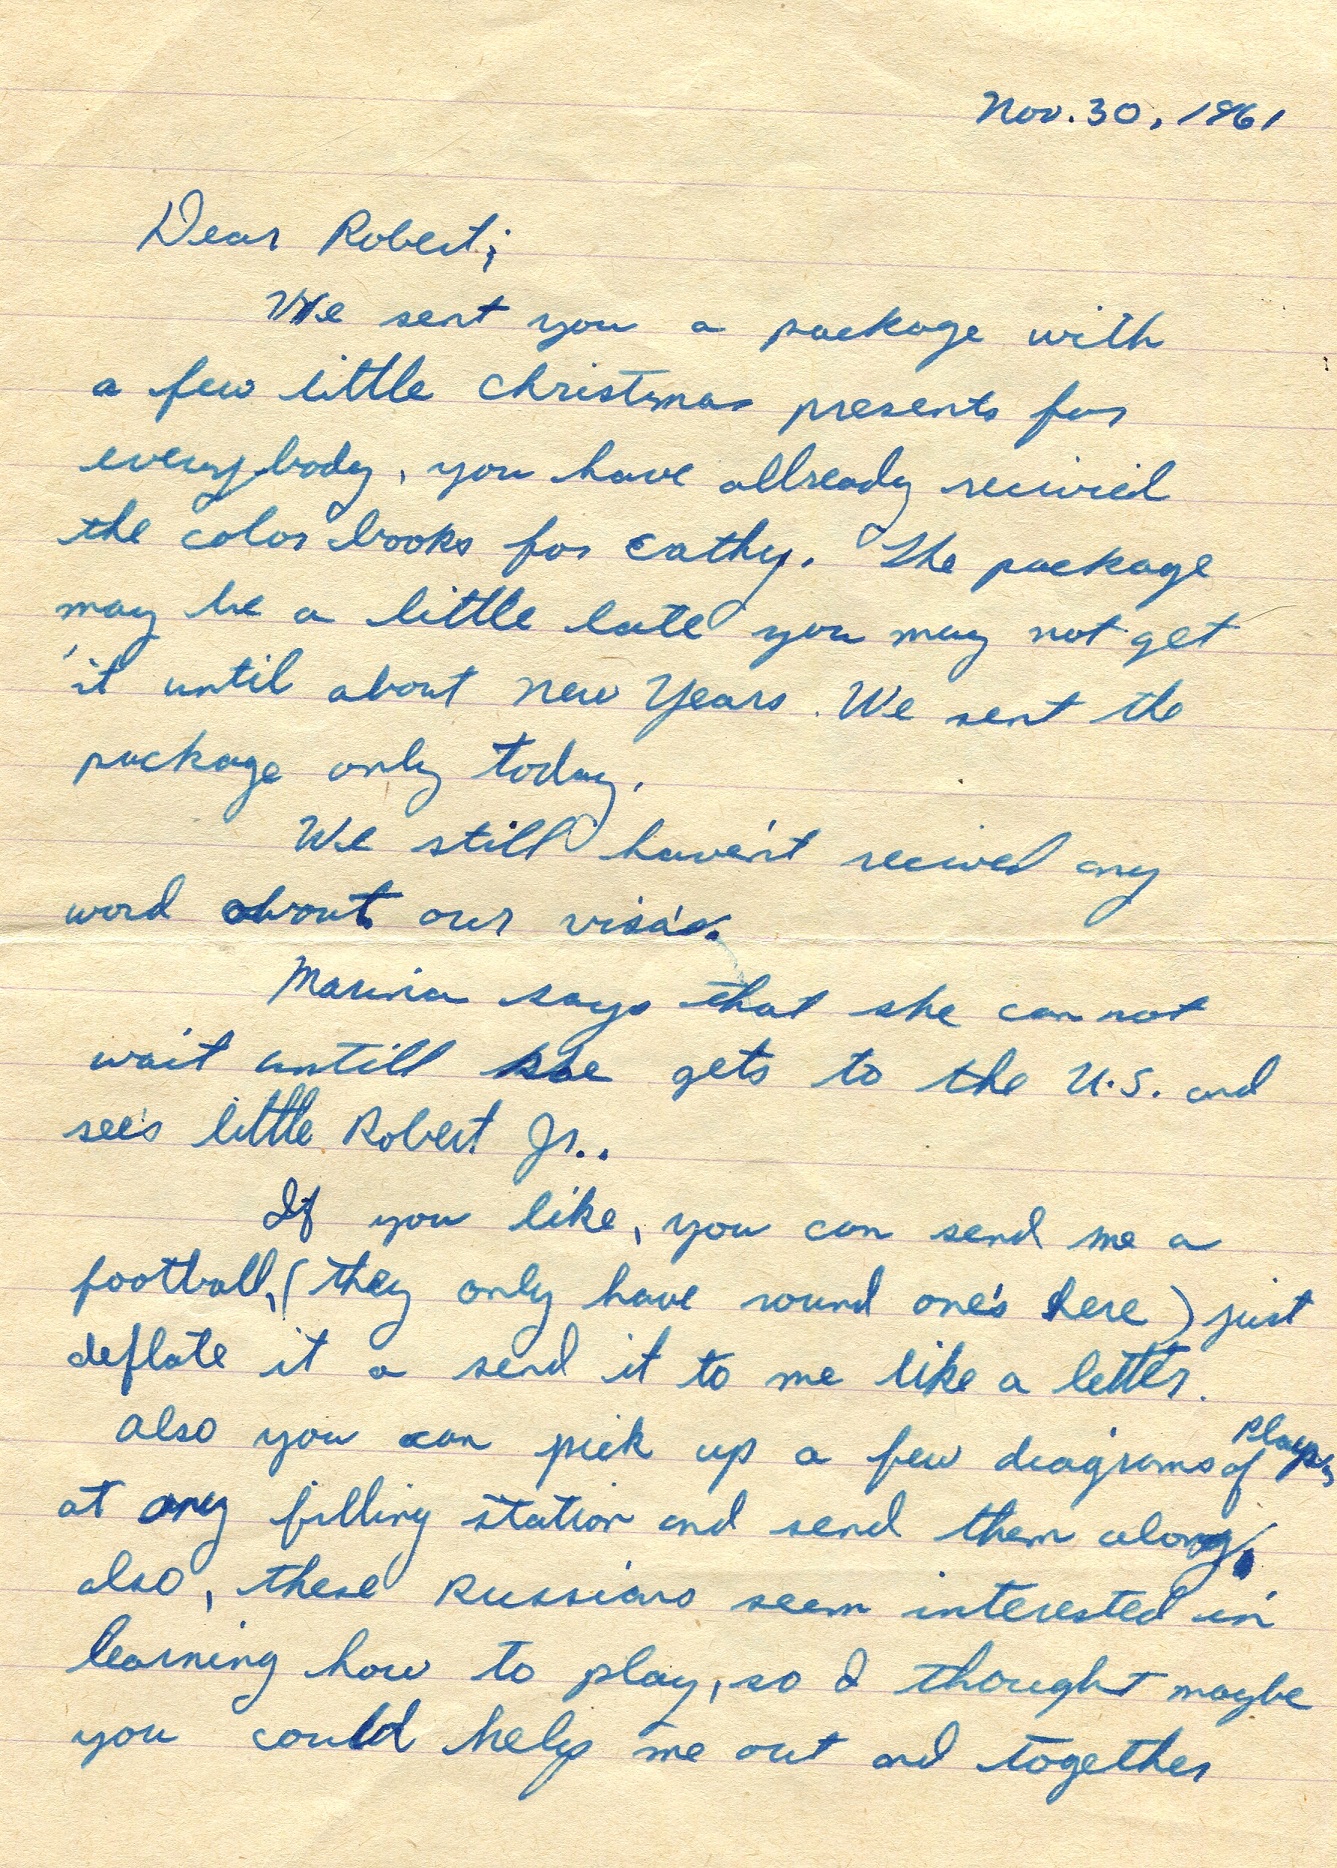 Nov. 30, 1961
Dear Robert;
We sent you a package with
a few little Christmas presents for
everybody, you have allready recivied
the color books for Cathy. The package
may be a little late you may not get
it until about New Years. We sent the
package only today.
We still haven't recived any
word about our visa's.
Marina says that she can not
wait untill she gets to the U.S. and
see's little Robert Jr..
If you like, you can send me a
football, (they only have round one's here) just
deflate it a send it to me like a letter.
Also you can pick up a few diagrams of plays
at any filling station and send them along,
also, these Russians seem interested in
learning how to play, so I thought maybe
you could help me out and together